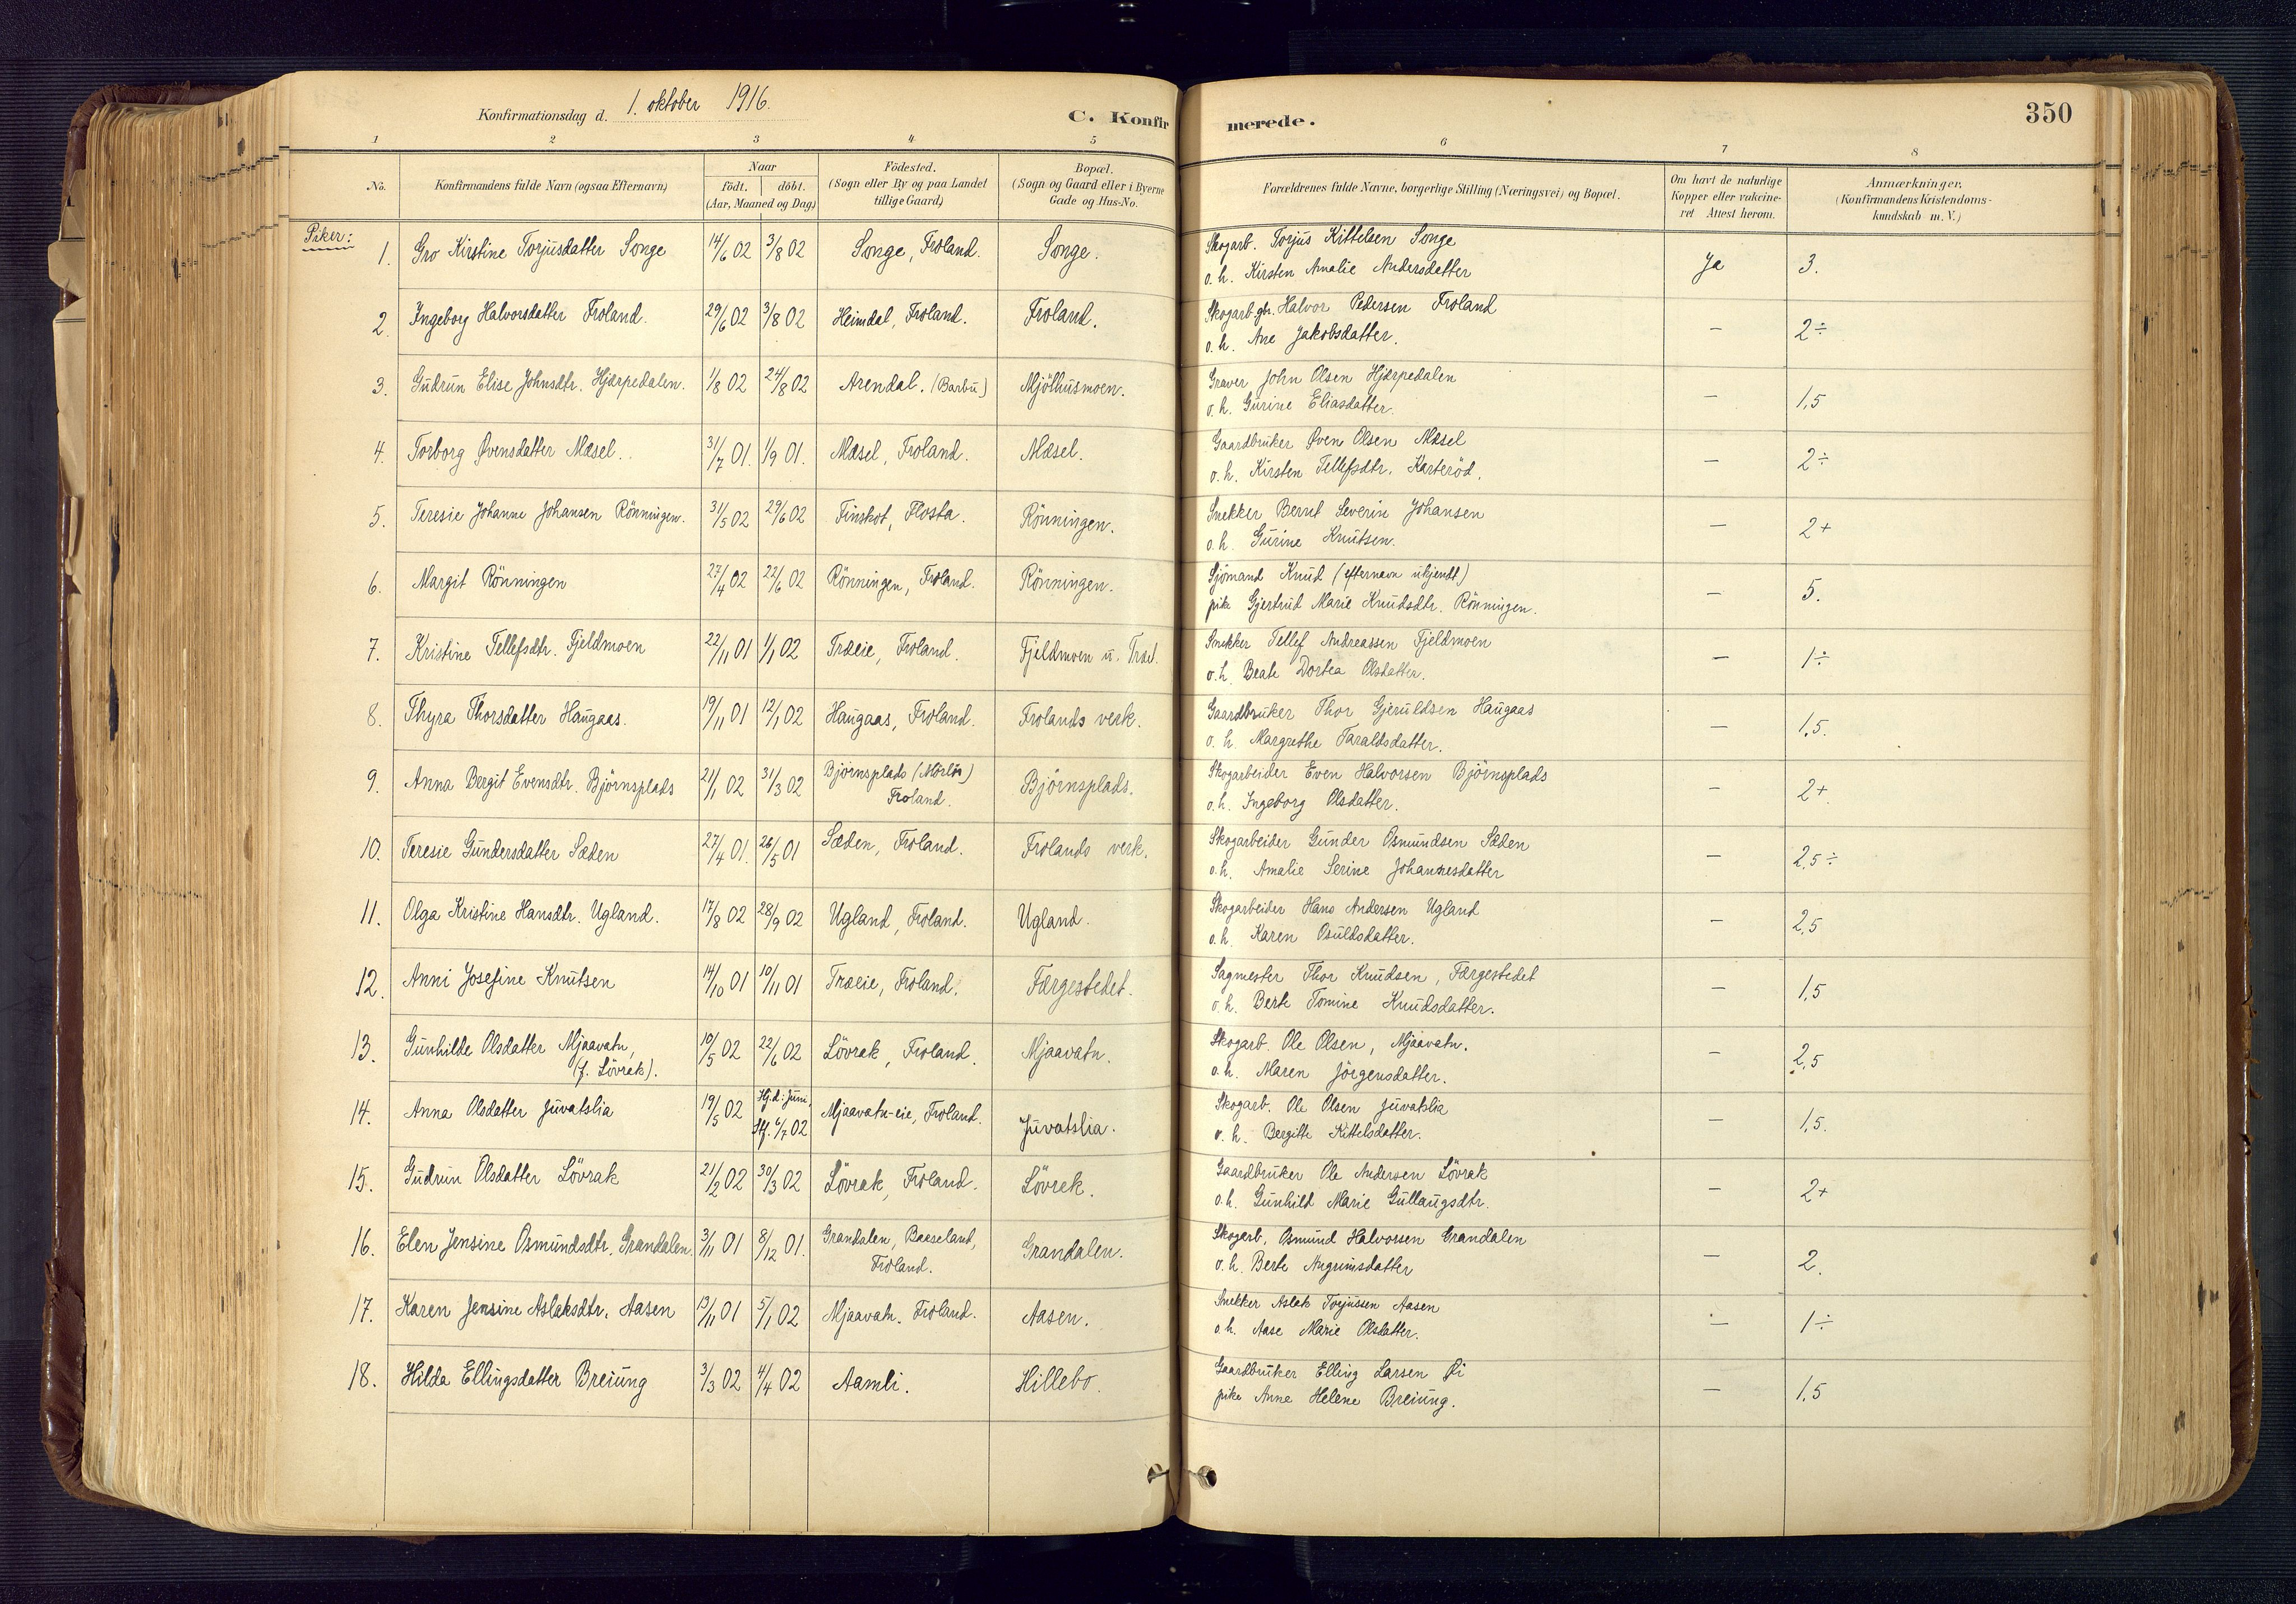 350
Konfirmationsdag d. 1. oktober 1916.
C. Konfirmerede.
1 2 3 4 5 6 7 8
No.
Konfirmandens fulde Navn (ogsaa Efternavn)
Naar
födt. döbt.
(Aar, Maaned og Dag)
Födested.
(Sogn eller By og paa Landet
tillige Gaard)
Bopæl.
(Sogn og Gaard eller i Byerne
Gade og Hus-No.
Forældrenes fulde Navne, borgerlige Stilling (Næringsvei) og Bopæl.
Om havt de naturlige
Kopper eller vakcine-
ret Attest herom.
Anmærkninger,
(Konfirmandens Kristendoms-
kundskab m. V.)
Piker:
1. Gro Kirstine Torjusdatter Songe 14/6 02 3/8 02 Songe, Froland. Songe. Skogarb. Torjus Kittelsen Songe
o. h. Kirsten Amalie Andersdatter Ja 3.
2. Ingeborg Halvorsdatter Froland. 29/6 02 3/8 02 Heimdal, Froland. Froland. Skogarb. gbr. Halvor Pedersen Froland
o. h. Ane Jakobsdatter. — 2÷
3. Gudrun Elise Johnsdtr. Hjærpedalen. 1/8 02 24/8 02 Arendal. (Barbu) Mjölhusmoen. Graver John Olsen Hjærpedalen
o. h. Gurine Eliasdatter. — 1,5
4. Torborg Øvensdatter Mæsel. 31/7 01. 1/9 01. Mæsel, Froland. Mæsel. Gaardbruker Øven Olsen Mæsel
o. h. Kirsten Tellefsdtr. Karteröd. — 2÷
5. Teresie Johanne Johansen Rönningen. 31/5 02 29/6 02 Tinskot, Flosta. Rönningen. Snekker Bernt Severin Johansen
o. h. Gurine Knutsen. — 2+
6. Margit Rönningen 27/4 02 22/6 02 Rönningen, Froland. Rönningen. Sjömand Knud (efternavn ukjendt)
pike Gjertrud Marie Knudsdtr. Rönningen. — 5.
7. Kristine Tellefsdtr. Fjeldmoen 22/11 01 1/1 02 Træeie, Froland. Fjeldmoen u. Træ. Snekker Tellef Andreassen Fjeldmoen
o. h. Beate Dortea Olsdatter. — 1÷
8. Thyra Thorsdatter Haugaas. 19/11 01 12/1 02 Haugaas, Froland. Frolands verk. Gaardbruker Thor Gjeruldsen Haugaas
o. h. Margrethe Taraldsdatter. — 1,5.
9. Anna Bergit Evensdtr. Björnsplads 21/1 02 31/3 02 Björnsplads (Mörlör)
Froland. Björnsplads. Skogarbeider Even Halvorsen Björnsplads
o. h. Ingeborg Olsdatter. — 2+
10. Teresie Gundersdatter Sæden 27/4 01. 26/5 01 Sæden, Froland. Frolands verk. Skogarbeider Gunder Osmundsen Sæden
o. h. Amalie Serine Johannesdatter — 2,5÷
11. Olga Kristine Hansdtr. Ugland. 17/8 02 28/9 02 Ugland, Froland. Ugland. Skogarbeider Hans Andersen Ugland
o. h. Karen Osuldsdatter. — 2,5
12. Anni Josefine Knutsen 14/10 01 10/11 01 Træeie, Froland. Færgestedet. Sagmester Thor Knudsen, Færgestedet
o. h. Berte Tomine Knudsdatter. — 1,5
13. Gunhilde Olsdatter Mjaavatn,
(f. Lövrak). 10/5 02 22/6 02 Lövrak, Froland. Mjaavatn. Skogarb. Ole Olsen, Mjaavatn.
o. h. Maren Jörgensdatter. — 2,5
14. Anna Olsdatter Juvatslia 19/5 02 Hj.d: Juni,
Stf. 6/7 02 Mjaavatn-eie, Froland. Juvatslia. Skogarb. Ole Olsen Juvatslia
o. h. Bergitte Kittelsdatter. — 1,5.
15. Gudrun Olsdatter Lövrak 21/2 02 30/3 02 Lövrak, Froland. Lövrak. Gaardbruker Ole Andersen Lövrak
o. h. Gunhild Marie Gullaugsdtr. — 2+
16. Elen Jensine Osmundsdtr. Grandalen. 3/11 01 8/12 01. Grandalen, Baaseland,
Froland. Grandalen. Skogarb. Osmund Halvorsen Grandalen
o. h. Berte Angrimsdatter — 2.
17. Karen Jensine Aslaksdtr. Aasen 13/11 01 5/1 02 Mjaavatn. Froland. Aasen. Snekker Aslak Torjussen Aasen
o. h. Aase Marie Olsdatter. — 1÷
18. Hilda Ellingsdatter Breiung 3/3 02 4/4 02 Aamli. Hillebo. Gaardbruker Elling Larsen Øi
pike Anne Helene Breiung. — 1,5